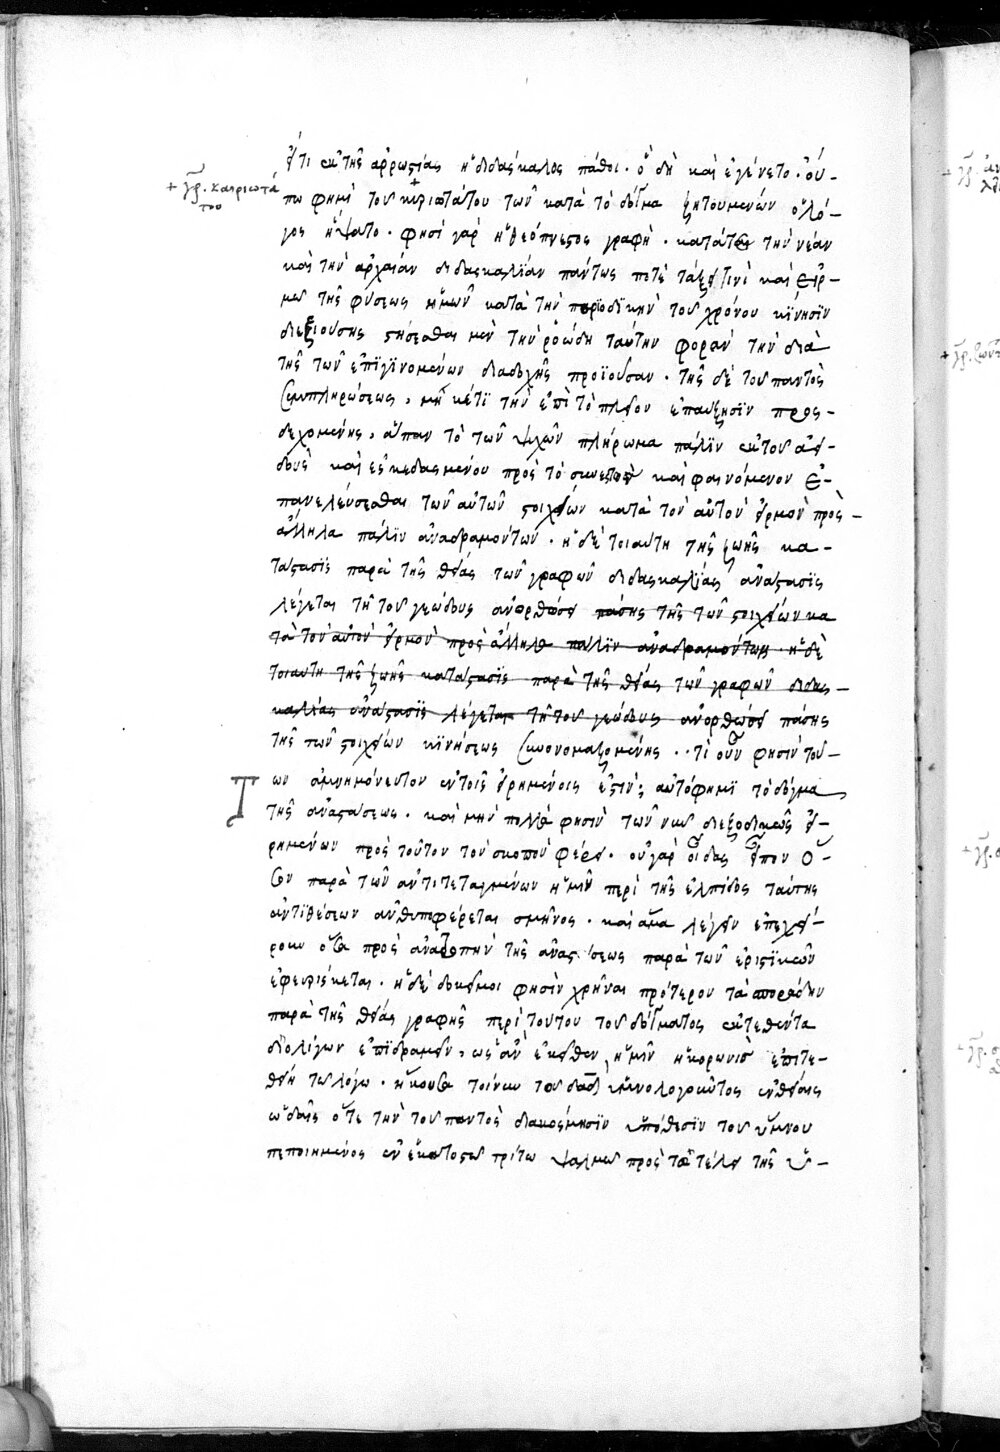 + γρ. καιριωτά
του
ὅτι ἐκ τῆς ἀρρωστίας ἡ διδάσκαλος πάθοι. ὃ δὴ καὶ ἐγένετο. οὔ-
πω φημὶ τοῦ κυριωτάτου τῶν κατὰ τὸ δόγμα ζητουμένων ὁ λό-
γος ἥψατο. φησὶ γὰρ ἡ θεόπνευστος γραφὴ. κατά τε τὴν νέαν
καὶ τὴν ἀρχαίαν διδασκαλίαν πάντως ποτὲ τάξει τινὶ καὶ εἱρ-
μῶ τῆς φύσεως ἡμῶν κατὰ τὴν περιοδικὴν τοῦ χρόνου κίνησιν
διεξιούσης στήσεσθαι μὲν τὴν ῥοώδη ταύτην φορὰν τὴν διὰ
τῆς τῶν ἐπιγινομένων διαδοχῆς προϊοῦσαν. τῆς δὲ τοῦ παντὸς
συμπληρώσεως, μηκέτι τὴν ἐπὶ τὸ πλεῖον ἐπαύξησιν προς-
δεχομένης, ἅπαν τὸ τῶν ψυχῶν πλήρωμα πάλιν ἐκ τοῦ ἀει-
δοῦς καὶ ἐσκεδασμένου πρὸς τὸ συνεστὸς καὶ φαινόμενον ἐ-
πανελεύσεσθαι τῶν αὐτῶν στοιχείων κατὰ τὸν αὐτὸν εἱρμὸν πρὸς-
ἄλληλα πάλιν ἀναδραμόντων. ἡ δὲ τοιαύτη τῆς ζωῆς κα-
τάστασις παρὰ τῆς θείας τῶν γραφῶν διδασκαλίας ἀνάστασις
λέγεται τῆ τοῦ γεώδους ἀνορθώσει πάσης τῆς τῶν στοιχείων κα
τὰ τὸν αὐτὸν εἱρμὸν πρὸς ἄλληλα πάλιν ἀναδραμόντων. ἡ δὲ
τοιαύτη τῆς ζωῆς κατάστασις παρὰ τῆς θείας τῶν γραφῶν διδας-
καλίας ἀνάστασις λέγεται τῆ τοῦ γεώδους ἀνορθώσει πάσης
τῆς τῶν στοιχείων κινήσεως συνονομαζομένης.. τί οὖν φησὶν τού-
Των ἀμνημόνευτον ἐν τοῖς εἰρημένοις ἐστὶν; αὐτό φημι τὸ δόγμα
τῆς ἀναστάσεως. καὶ μὴν πολλὰ φησὶν τῶν νῦν διεξοδικῶς εἰ-
ρημένων πρὸς τοῦτον τὸν σκοπὸν φέρει. οὐ γὰρ οἶδας εἶπον ὅ-
σον παρὰ τῶν ἀντιτεταγμένων ἡμῖν περὶ τῆς ἐλπίδος ταύτης
ἀντιθέσεων ἀνθυποφέρεται σμῆνος. καὶ ἅμα λέγειν ἐπεχεί-
ρουν ὅσα πρὸς ἀνατροπὴν τῆς ἀναστάσεως παρὰ τῶν ἐριστικῶν
ἐφευρίσκεται. ἡ δὲ δοκεῖ μοι φησὶν χρῆναι πρότερον τὰ σποράδην
παρὰ τῆς θείας γραφῆς περὶ τούτου τοῦ δόγματος ἐκτεθέντα
δι ὀλίγων ἐπιδραμεῖν, ὡς ἂν ἐκεῖθεν ἡμῖν ἡ κορωνὶς ἐπιτε-
θείη τῶ λόγω. ἤκουσα τοίνυν τοῦ δαδ ὑμνολογοῦντος ἐν θείαις
ὠδαῖς ὅτε τὴν τοῦ παντὸς διακόσμησιν ὑπόθεσιν τοῦ ὕμνου
πεποιημένος ἐν ἑκατοστῶ τρίτω ψαλμῶ πρὸς τῶ τέλει τῆς ὑ-